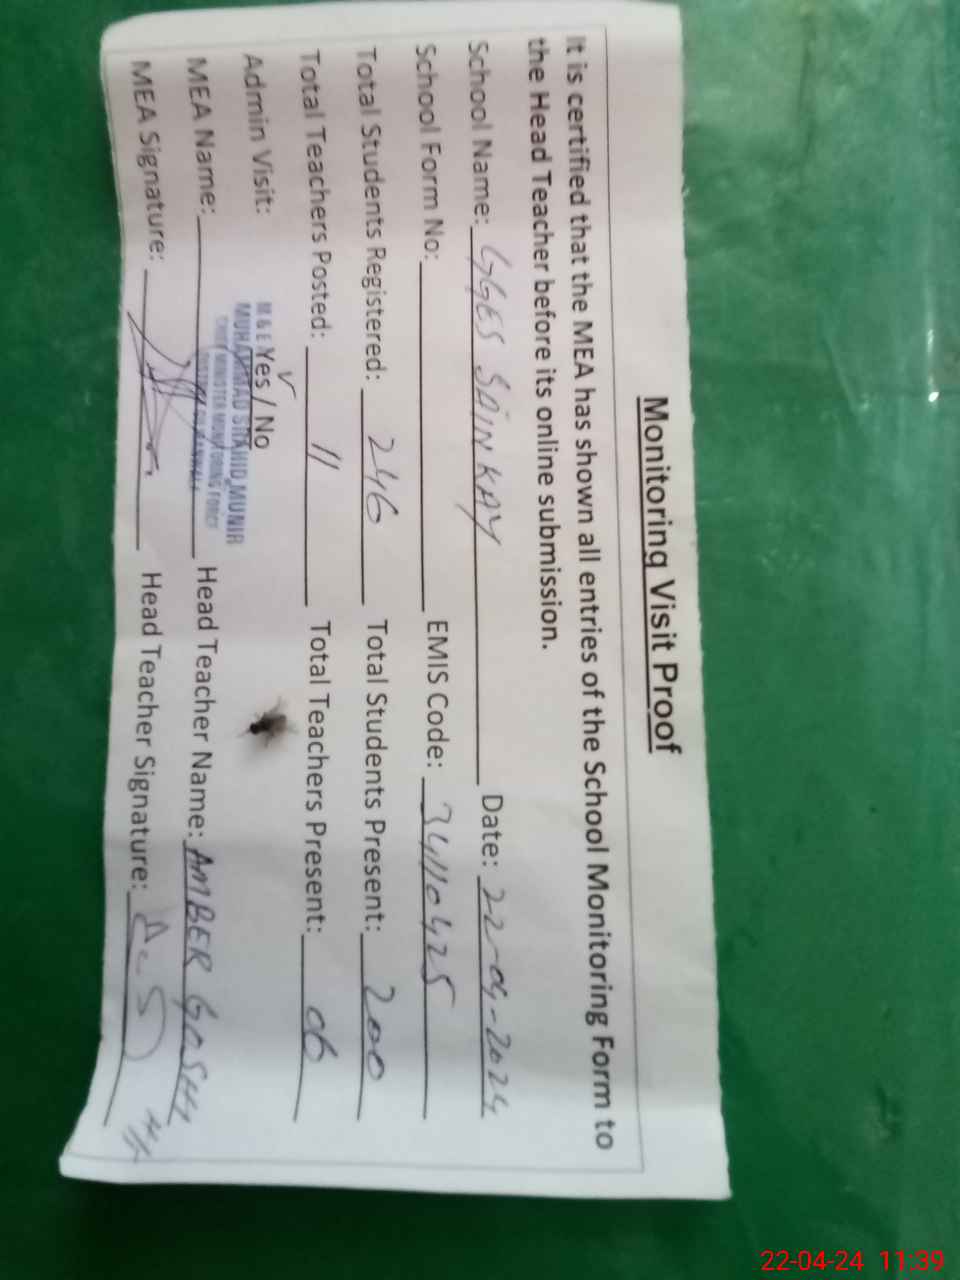 Monitoring Visit Proof
It is certified that the MEA has shown all entries of the School Monitoring Form to
the Head Teacher before its online submission.
School Name: GGES SAINKAY Date: 22-04-2024
School Form No: EMIS Code: 34110425
Total Students Registered: 246 Total Students Present: 200
Total Teachers Posted: 11 Total Teachers Present: 06
Admin Visit: Yes / No
M & E
MUHAMMAD SHAHID MUNIR
CHIEF MINISTER MONITORING FORCE
MEA Name: Head Teacher Name: AMBER GOSHI
MEA Signature: Head Teacher Signature:
22-04-24 11:39